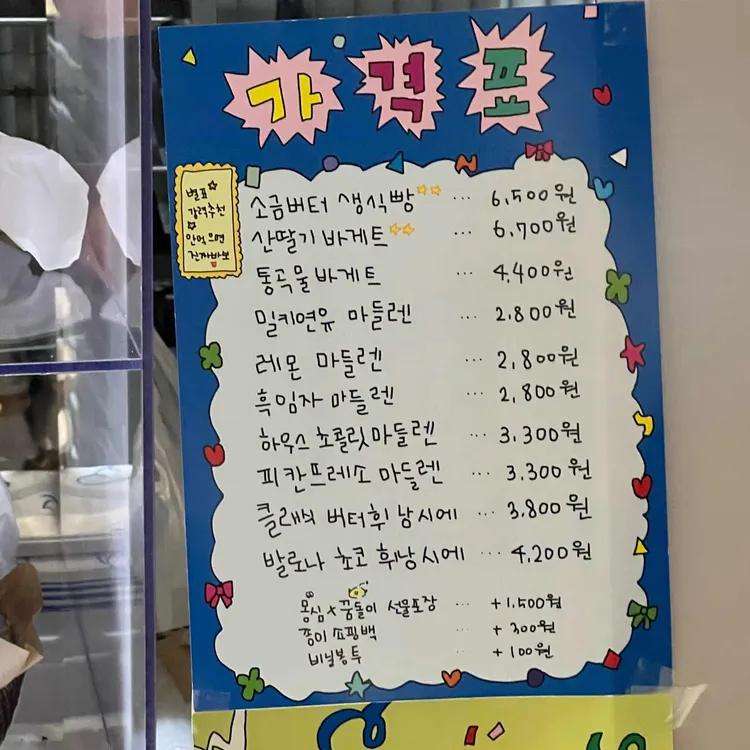 가격표
별표☆
강력추천
☆
안먹으면
진짜바보
소금버터 생식빵☆☆ ... 6,500원
산딸기 바게트☆☆ ... 6,700원
통곡물 바게트 ... 4,400원
밀키연유 마들렌 ... 2,800원
레몬 마들렌 ... 2,800원
흑임자 마들렌 ... 2,800원
하우스 초콜릿 마들렌 ... 3,300원
피칸프레소 마들렌 ... 3,300원
클래식 버터휘낭시에 ... 3,800원
발로나 쵸코 휘낭시에 ... 4,200원
몽심 x 꿈돌이 선물포장 ... +1,500원
종이 쇼핑백 ... +300원
비닐봉투 ... +100원